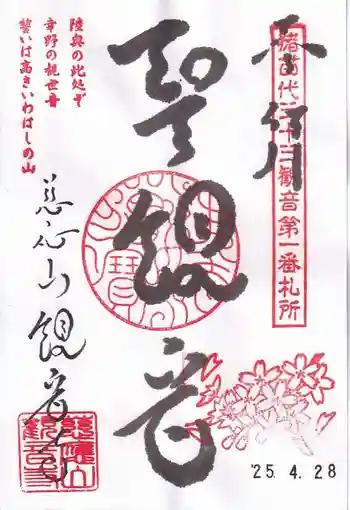 奉拝
猪苗代三十三観音第一番札所
聖観音
陸奥の此処ぞ
寺野の観世音
誓いは高きいわはしの山
観音寺
'25. 4. 28